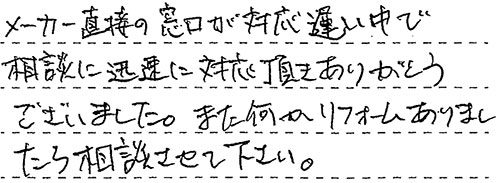 メーカー直接の窓口が対応遅い中で
相談に迅速に対応頂きありがとう
ございました。また何かリフォームありまし
たら相談させて下さい。